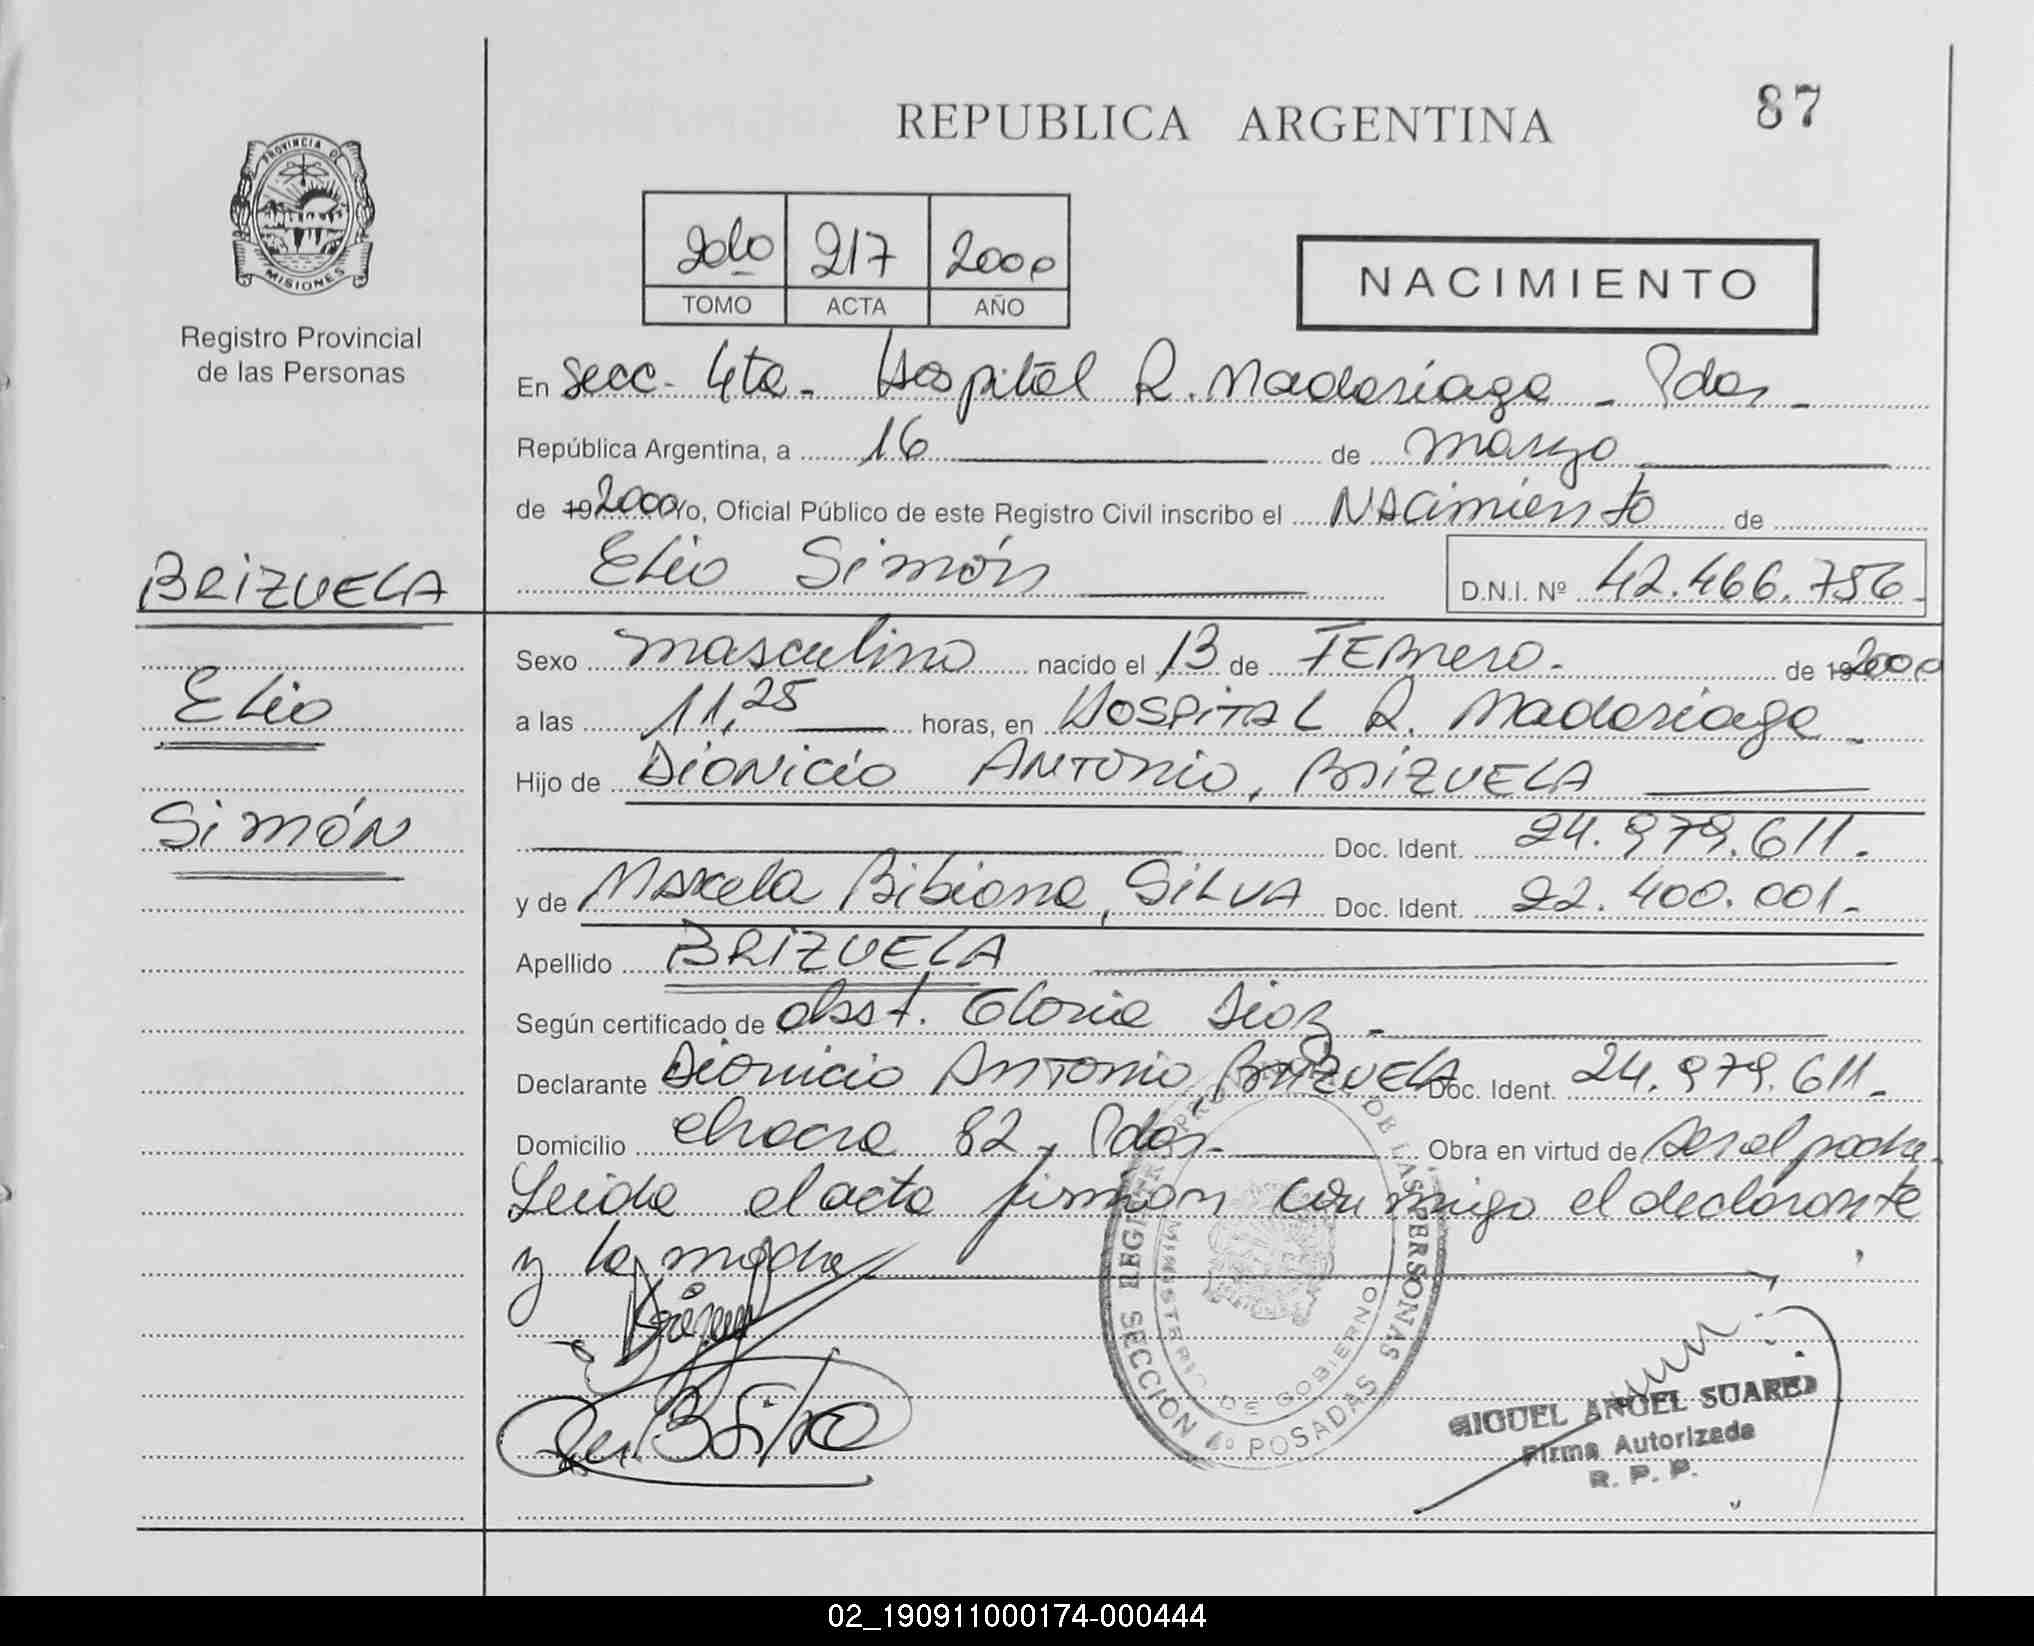 REPUBLICA ARGENTINA
87
PROVINCIA DE
MISIONES
Registro Provincial
de las Personas
217 2000
TOMO ACTA AÑO
NACIMIENTO
En Secc. 4ta. Hospital R. Madariaga - Pdas -
República Argentina, a 16 de marzo
de 19 2000 Yo, Oficial Público de este Registro Civil inscribo el NACimiento de
Elio Simón D.N.I. Nº 42.466.756.
BRIZUELA
Elio
Simón
Sexo masculino nacido el 13 de FEBrero. de 19 2000
a las 11,25 horas, en HOSPITAL R. Madariaga.
Hijo de Dionicio Antonio, BRIZUELA
Doc. Ident. 24.979.611.
y de Marcela Bibiana, SILVA Doc. Ident. 22.400.001.
Apellido BRIZUELA
Según certificado de obst. Gloria Dioz.
Declarante Dionicio Antonio, BRIZUELA Doc. Ident. 24.979.611.
Domicilio chacra 82, Pdas. Obra en virtud de ser el padre.
Leida el acta firman conmigo el declarante
y la madre
REGISTRO PROVINCIAL DE LAS PERSONAS
MINISTERIO DE GOBIERNO
SECCION 4º POSADAS
MIGUEL ANGEL SUAREZ
Firma Autorizada
R. P. P.
02_190911000174-000444